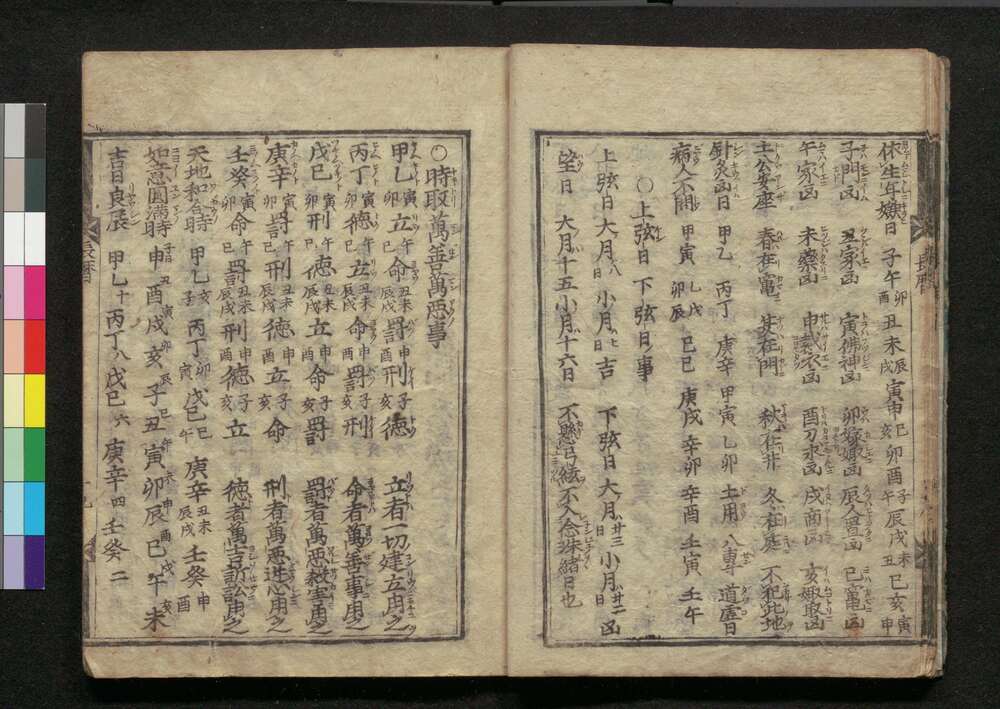 依生年嫌日 子午 卯酉 丑未 辰戌 寅申 巳亥 卯酉 子午 辰戌 未丑 巳亥 寅申
子門凶 丑家凶 寅佛神凶 卯嫁娶凶 辰入凶 巳竃凶
午家凶 未藥凶 申裁衣凶 酉刀凶 戌商凶 亥娵取凶
土公変座 春在竃 夏在門 秋在井 冬在庭 不犯此地
針灸凶日 甲乙 丙丁 庚辛 甲寅 乙卯 土用 八專 道虚日
病人不問 甲寅 乙卯 戊辰 己巳 庚戌 辛卯 辛酉 壬寅 壬午
○上弦日下弦日事
上弦日 大月八日 小月七日 吉 下弦日 大月廿三日 小月廿二日 凶
望日 大月十五 小月十六日 不懸弓絃不入念珠緒日也
長暦
○時取萬善萬悪事
甲乙 寅卯 立 午巳 命 丑未辰戌 罰 申酉 刑 子亥 徳 立者一切建立用之
丙丁 寅卯 徳 午巳 立 丑未辰戌 命 申酉 罰 子亥 刑 命者萬善事用之
戊己 寅卯 刑 午巳 徳 丑未辰戌 立 申酉 命 子亥 罰 罰者萬悪殺害用之
庚辛 寅卯 罰 午巳 刑 丑未辰戌 徳 申酉 立 子亥 命 刑者萬悪用之
壬癸 寅卯 命 午巳 罰 丑未辰戌 刑 申酉 徳 子亥 立 徳者萬吉訴訟用之
天地和合時 甲乙 亥子 丙丁 卯寅 戊己 巳午 庚辛 丑未辰戌 壬癸 申酉
如意圓満時 申子 酉丑 戌寅 亥卯 子辰 丑巳 寅午 卯未 辰申 巳酉 午戌 未亥
吉日良辰 甲乙十 丙丁八 戊己六 庚辛四 壬癸二
長暦